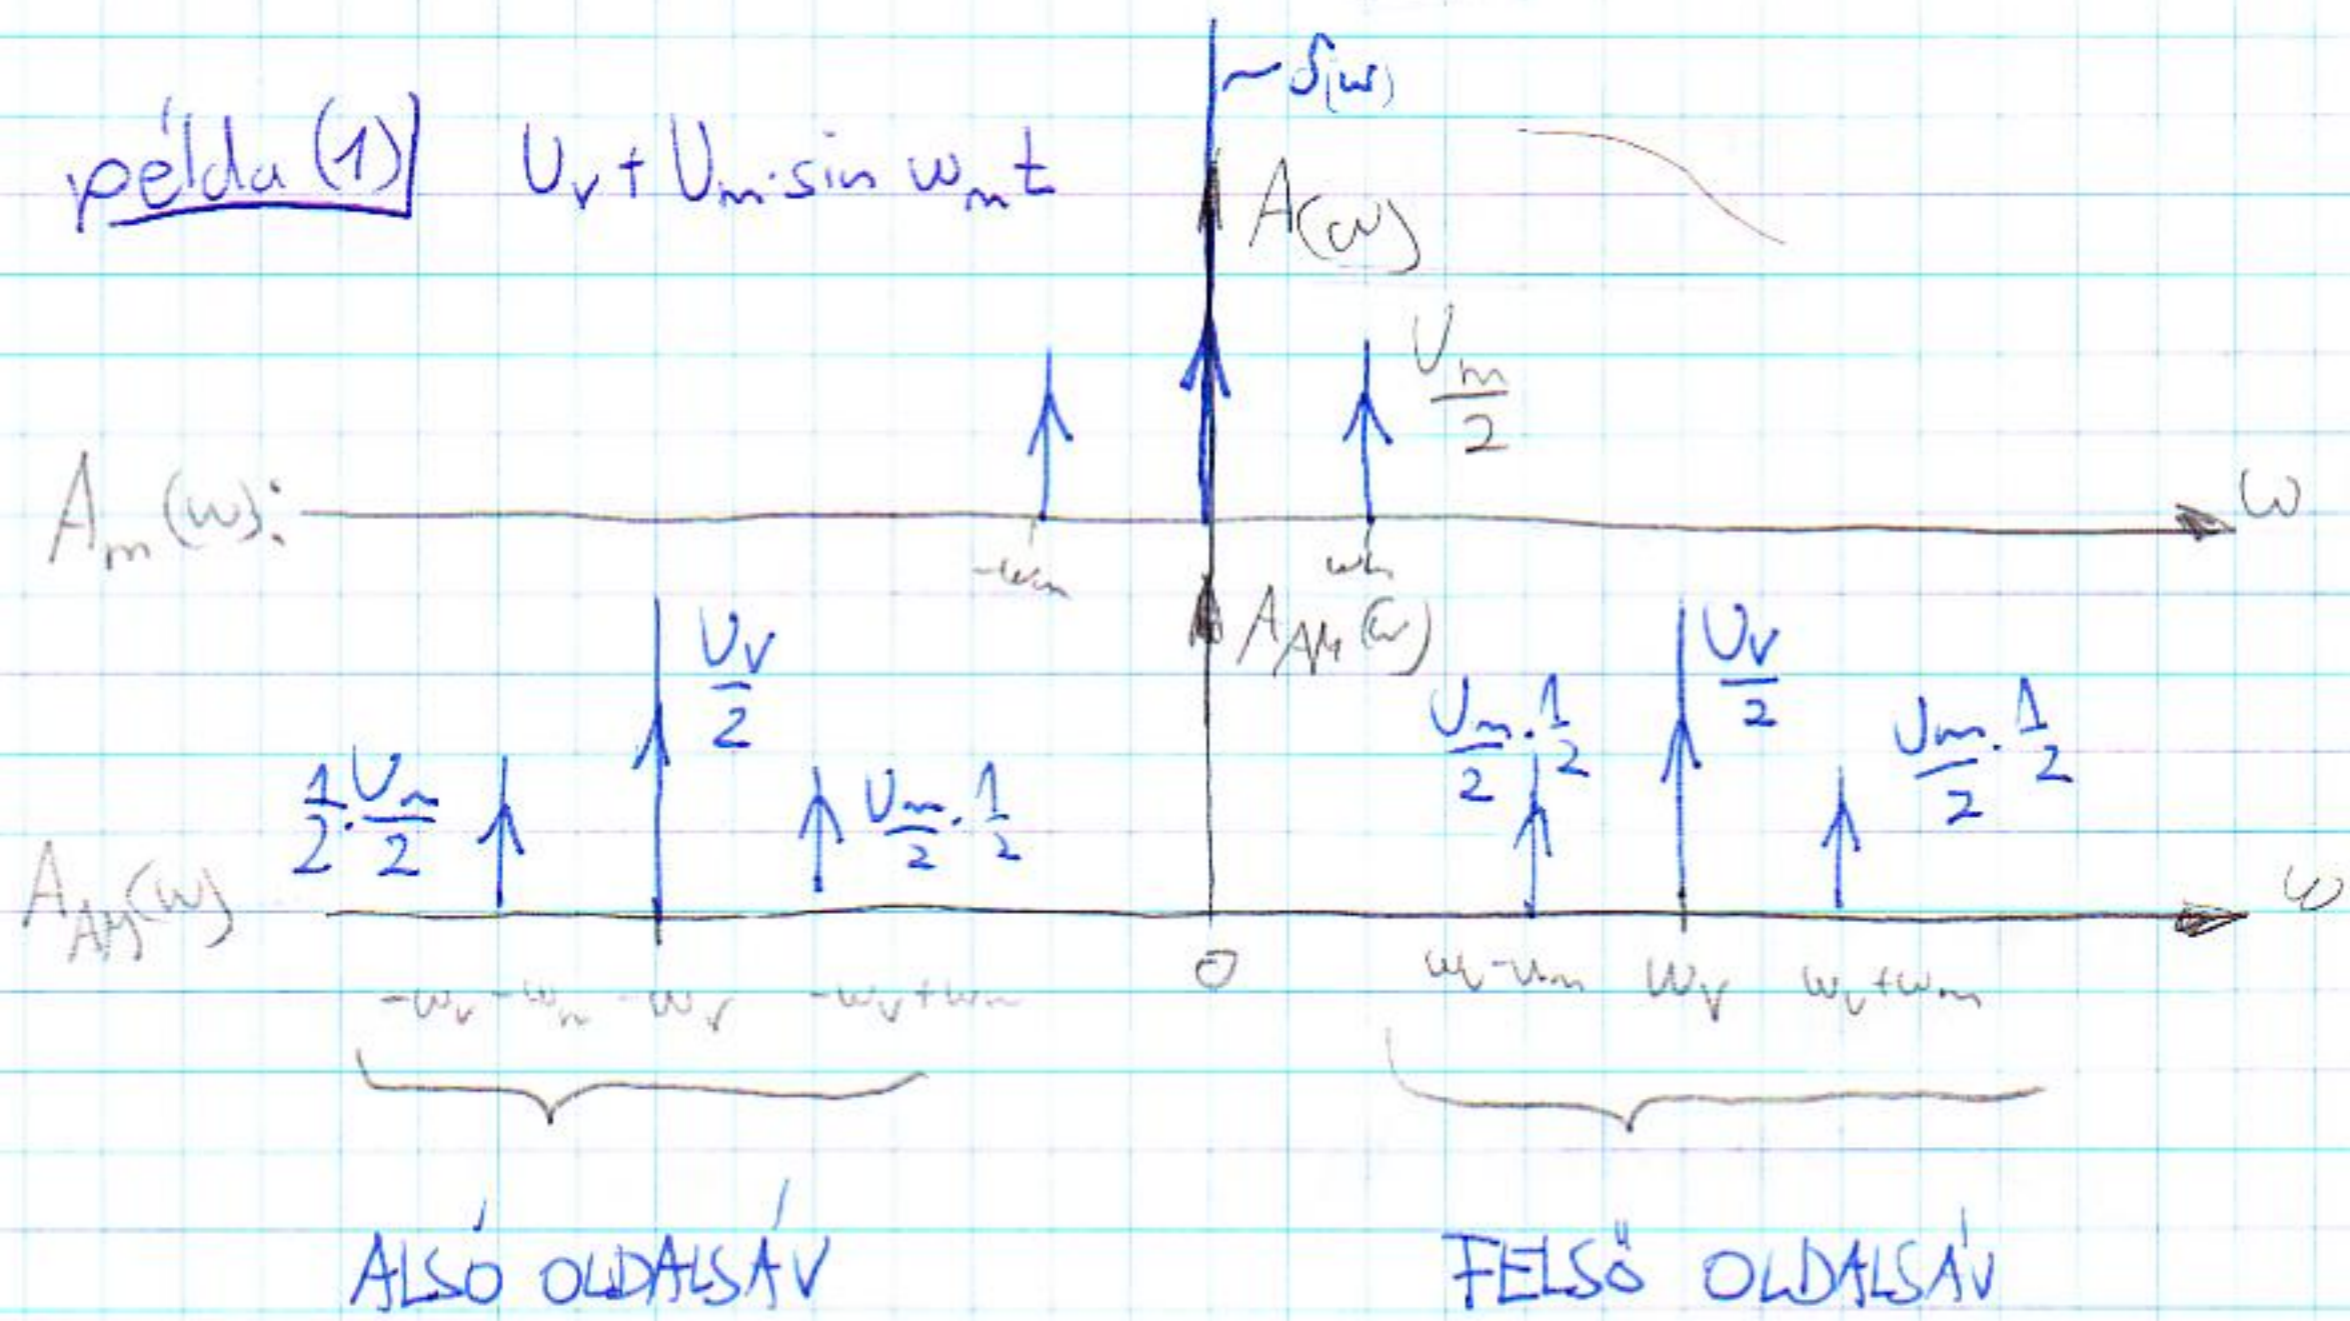 ~δ(ω)
példa (1) U_v + U_m·sin ω_m t
A(ω)
U_m/2
A_m(ω): ω
-ω_m ω_m
A_AM(ω)
U_v/2 U_v/2
1/2·U_m/2 U_m/2·1/2 U_m/2·1/2 U_m/2·1/2
A_AM(ω) ω
-ω_v-ω_m -ω_v -ω_v+ω_m 0 ω_v-ω_m ω_v ω_v+ω_m
ALSÓ OLDALSÁV FELSŐ OLDALSÁV